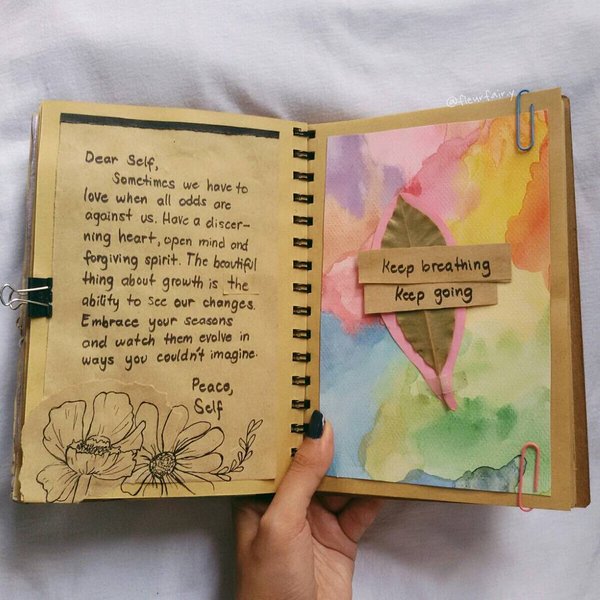 Dear Self,
Sometimes we have to
love when all odds are
against us. Have a discer-
ning heart, open mind and
forgiving spirit. The beautiful
thing about growth is the
ability to see our changes.
Embrace your seasons
and watch them evolve in
ways you couldn't imagine.
Peace,
Self
@fleurfair.y
Keep breathing
Keep going